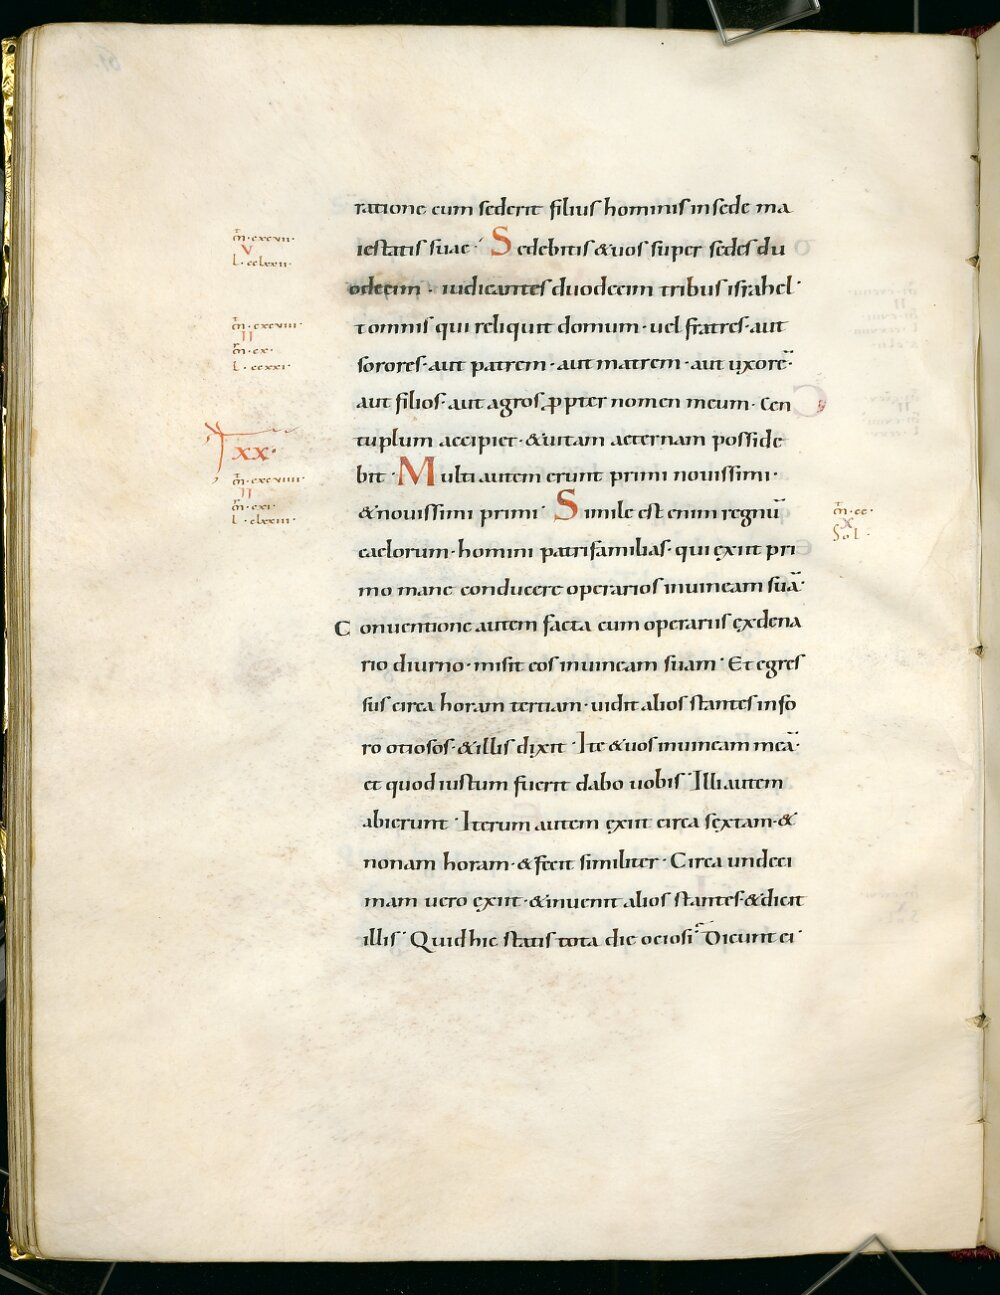 ratione cum sederit filius hominis in sede ma
m̄·cxcvii·
V
l·cclxxii·
iestatis suae· Sedebitis &uos super sedes du
odecim· iudicantes duodecim tribus israhel·
m̄·cxcviii·
II
m̄r·cx·
l·ccxxi·
& omnis qui reliquit domum· uel fratres· aut
sorores· aut patrem· aut matrem· aut uxorē·
aut filios· aut agros ꝓpter nomen meum· Cen
tuplum accipiet· &uitam aeternam posside
XX·
bit· Multi autem erunt primi nouissimi·
m̄·cxcviiii·
II
m̄r·cxi·
l·clxxiii·
&nouissimi primi· Simile est enim regnū
m̄·cc·
X
Sol·
caelorum· homini patrifamilias· qui exiit pri
mo mane conducere operarios inuineam suā·
Conuentione autem facta cum operariis exdena
rio diurno· misit eos inuineam suam· Et egres
sus circa horam tertiam· uidit alios stantes info
ro otiosos· &illis dixit· Ite &uos inuineam meā·
et quod iustum fuerit dabo uobis· Illi autem
abierunt· Iterum autem exiit circa sextam· &
nonam horam· & fecit similiter· Circa undeci
mam uero exiit· &inuenit alios stantes· &dicit
illis· Quid hic statis tota die ociosi· Dicunt ei·